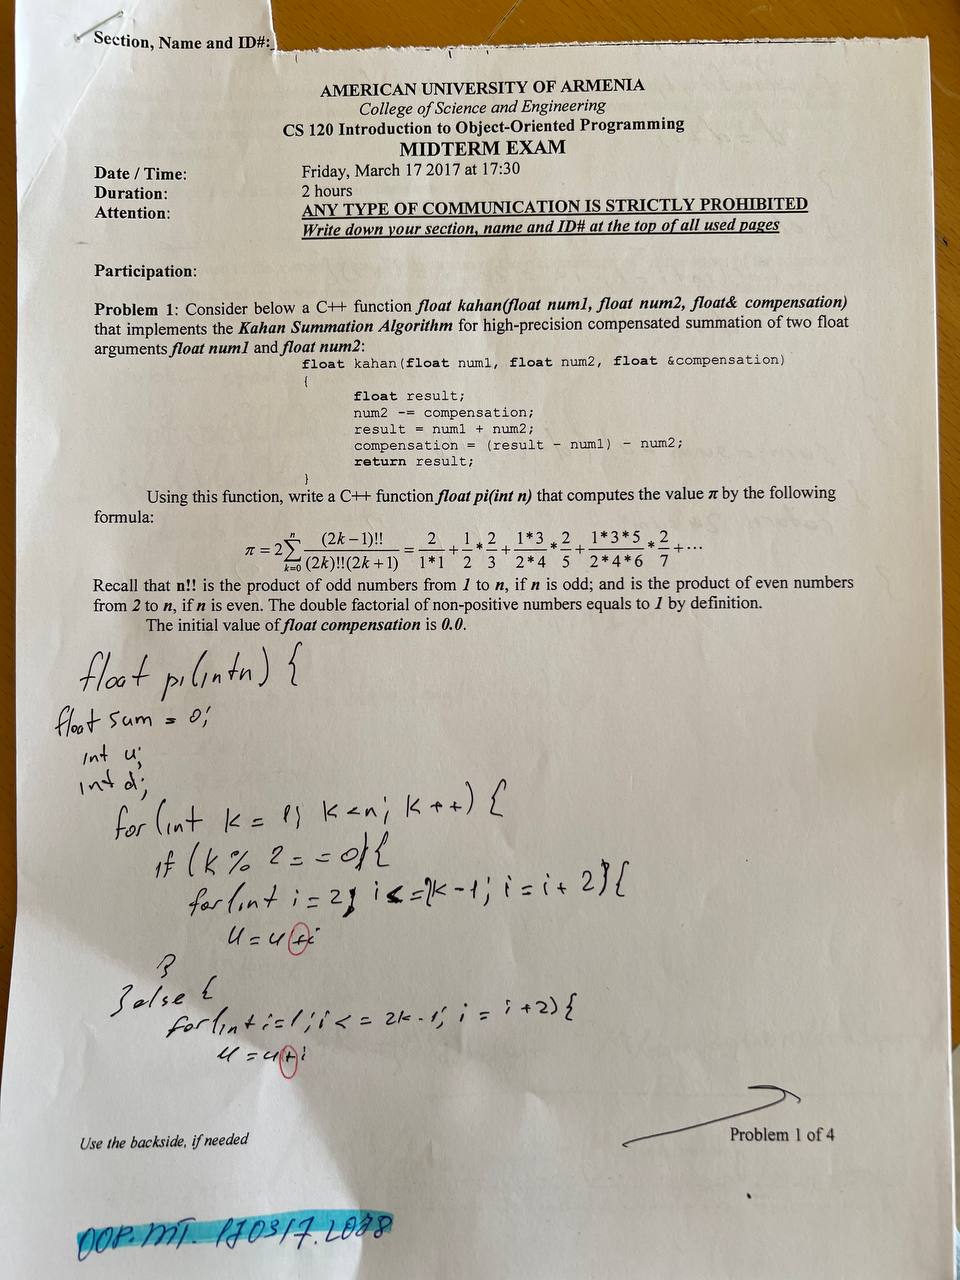 Section, Name and ID#:
AMERICAN UNIVERSITY OF ARMENIA
College of Science and Engineering
CS 120 Introduction to Object-Oriented Programming
MIDTERM EXAM
Date / Time: Friday, March 17 2017 at 17:30
Duration: 2 hours
Attention: ANY TYPE OF COMMUNICATION IS STRICTLY PROHIBITED
Write down your section, name and ID# at the top of all used pages
Participation:
Problem 1: Consider below a C++ function float kahan(float num1, float num2, float& compensation)
that implements the Kahan Summation Algorithm for high-precision compensated summation of two float
arguments float num1 and float num2:
float kahan(float num1, float num2, float &compensation)
{
float result;
num2 -= compensation;
result = num1 + num2;
compensation = (result - num1) - num2;
return result;
}
Using this function, write a C++ function float pi(int n) that computes the value π by the following
formula:
π = 2 ∑_{k=0}^{n} (2k−1)!! / ((2k)!!(2k+1)) = 2/(1*1) + 1/2 * 2/3 + (1*3)/(2*4) * 2/5 + (1*3*5)/(2*4*6) * 2/7 + ⋯
Recall that n!! is the product of odd numbers from 1 to n, if n is odd; and is the product of even numbers
from 2 to n, if n is even. The double factorial of non-positive numbers equals to 1 by definition.
The initial value of float compensation is 0.0.
float pi(int n) {
float sum = 0;
int u;
int d;
for (int k = 1; k < n; k++) {
if (k % 2 == 0) {
for (int i = 2; i <= 2k-1; i = i + 2) {
u = u + i
}
} else {
for (int i = 1; i <= 2k-1; i = i + 2) {
u = u + i
Use the backside, if needed
Problem 1 of 4
OOP.MT.170317.L088